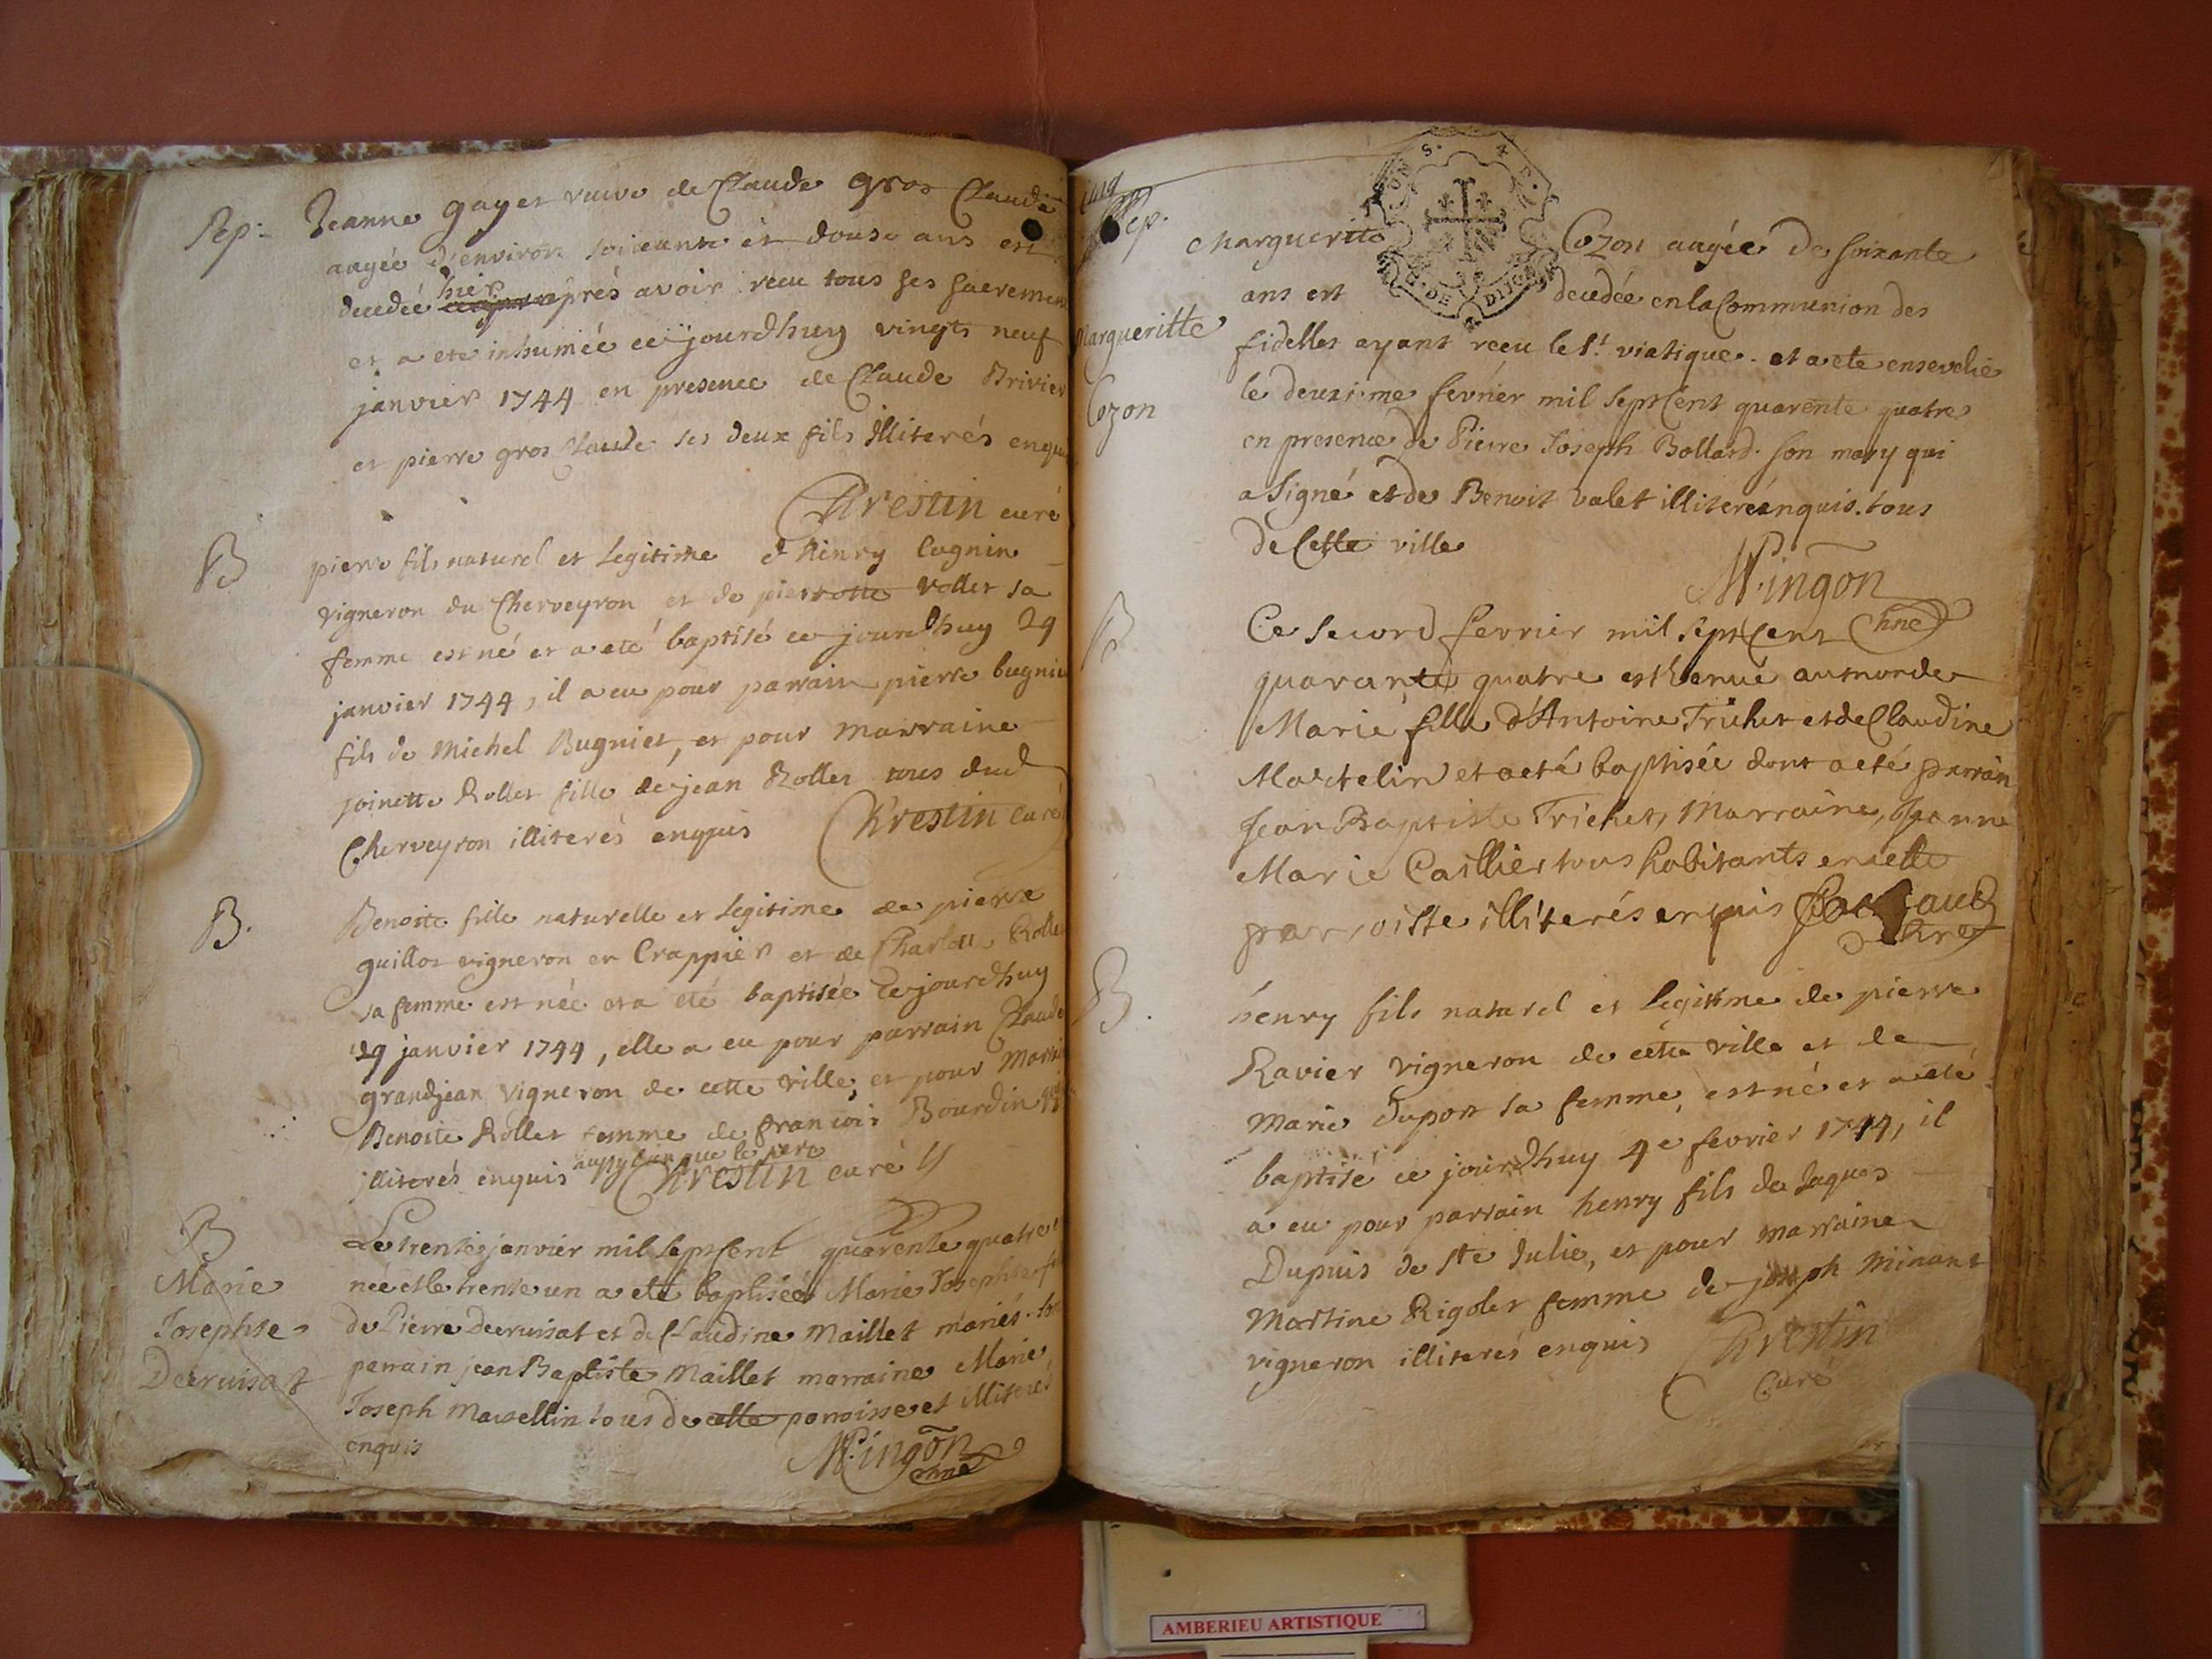 Sep:
Jeanne gayet veuve de Claude gros Claude
aagée d'environ soixante et douse ans est
decedée hier après avoir receu tous ses sacremens
et a ete inhumée ce jourdhuy vingts neuf
janvier 1744 en presence de Claude Brivier
et pierre gros Claude ses deux fils illiterés enquis
Chrestin curé
B
pierre fils naturel et Legitime d'hinry Cognin
vigneron du Cherveyron et de pierrotte rollet sa
femme est né et a eté baptisé ce jourdhuy 29
janvier 1744, il a eu pour parrain pierre bugniet
fils de Michel Bugniet, et pour marraine
joinette Rollet fille de jean Rollet tous dud
Cherveyron illiterés enquis Chrestin curé
B.
Benoite fille naturelle et legitime de pierre
guillot vigneron en Crappier et de Charlotte Rollet
sa femme est née et a eté baptisée ce jourdhuy
29 janvier 1744, elle a eu pour parrain Claude
grandjean vigneron de cette ville, et pour Marraine
Benoite Rollet femme de francois Bourdin
illiterés enquis aussy bien que le pere
Chrestin curé
B
Marie
Josephte
Decruisat
Le trente janvier mil sept Cent quarente quatre est
née et le trente un a eté baptisée Marie Josephte fille
de Pierre Decruisat et de Claudine Maillet mariés.
parrain jean Baptiste Maillet marraine Marie
Joseph Marcellin tous de cette parroisse et illiterés
enquis
Mingon
chne
Sep.
Margueritte
Cozon
Marguerite Cozon aagée de soixante
ans est decedée en la Communion des
fidelles ayant receu le St viatique. et a ete ensevelie
le deuxime fevrier mil sept Cent quarente quatre
en presence de Pierre Joseph Bollard son mary qui
a signé et de Benoit valet illiteré enquis. tous
de Cette ville
Mingon
chne
B
Ce second fevrier mil sept Cent
quarante quatre est venüe au monde
Marie fille d'Antoine Trichet et de Claudine
Martelin et a eté baptisée dont a eté parrain
Jean Baptiste Trichet, Marraine, Jeanne
Marie Caillier tous habitants en cette
parroisse illiterés enquis
B.
henry fils naturel et legitime de pierre
Ravier vigneron de cette ville et de
Marie Dupont sa femme, est né et a eté
baptisé ce jourdhuy 4e fevrier 1744, il
a eu pour parrain henry fils de Jaques
Dupuis de Ste Julie, et pour marraine
Martine Rigolet femme de joseph Minant
vigneron illiterés enquis Chrestin
Curé
G. DE DIJON
AMBERIEU ARTISTIQUE